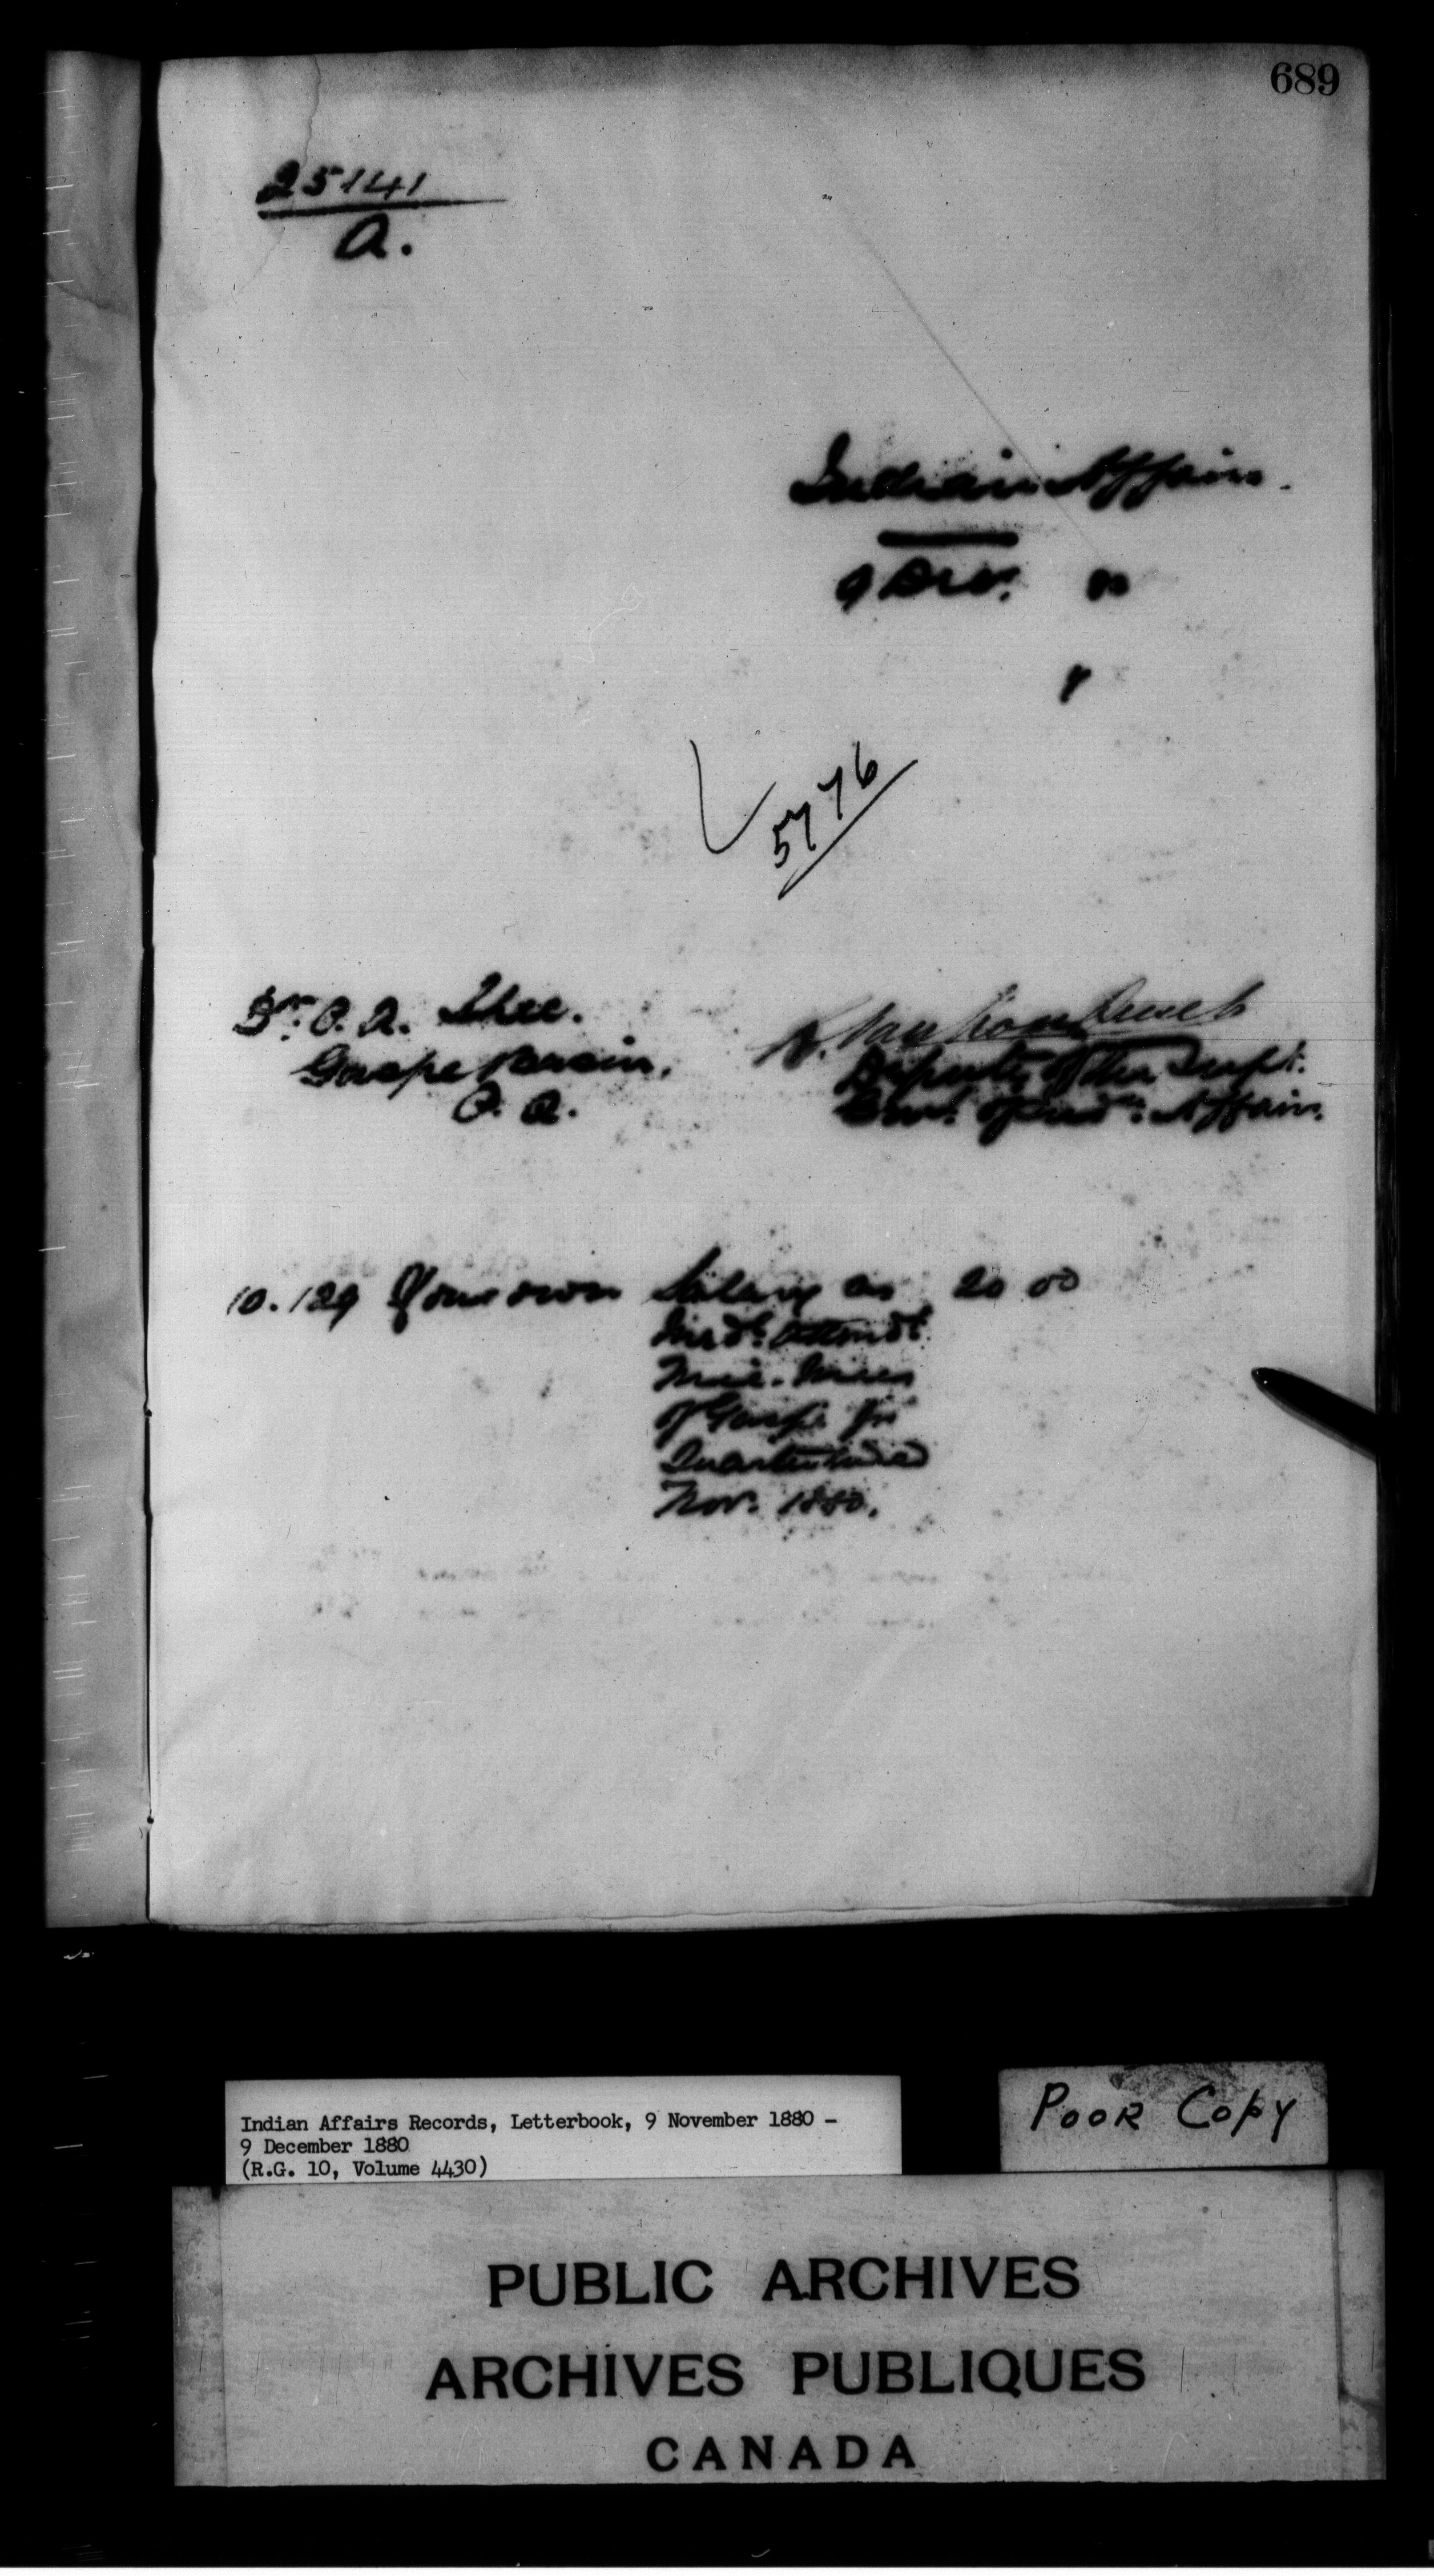 689
25141
A.
Indian Affairs.
9 Dec. 80
5776
Dr. P. A. Shee.
Gaspe Basin,
P. Q.
L. Vankoughnet
Deputy of the Supt.
Genl. of Indn. Affairs.
10.129 Your own Salary as 20 00
Medl. Attendt.
Mic. Macs
of Gaspe for
Quarter ended
Nov. 1880.
Indian Affairs Records, Letterbook, 9 November 1880 -
9 December 1880
(R.G. 10, Volume 4430)
POOR COPY
PUBLIC ARCHIVES
ARCHIVES PUBLIQUES
CANADA